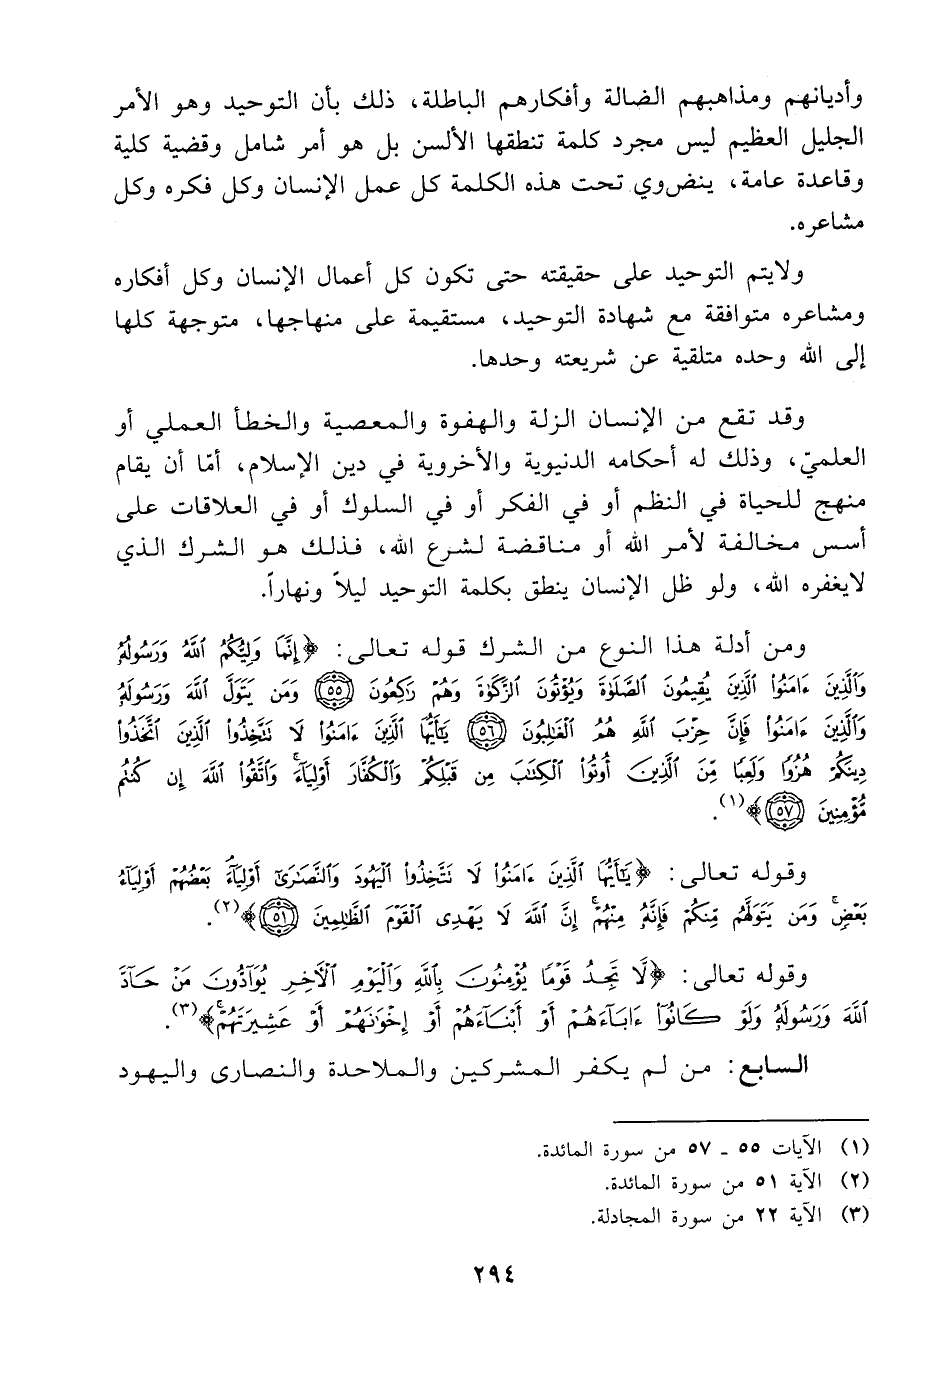 وأديانهم ومذاهبهم الضالة وأفكارهم الباطلة، ذلك بأن التوحيد وهو الأمر
الجليل العظيم ليس مجرد كلمة تنطقها الألسن بل هو أمر شامل وقضية كلية
وقاعدة عامة، ينضوي تحت هذه الكلمة كل عمل الإنسان وكل فكره وكل
مشاعره.
ولايتم التوحيد على حقيقته حتى تكون كل أعمال الإنسان وكل أفكاره
ومشاعره متوافقة مع شهادة التوحيد، مستقيمة على منهاجها، متوجهة كلها
إلى الله وحده متلقية عن شريعته وحدها.
وقد تقع من الإنسان الزلة والهفوة والمعصية والخطأ العملي أو
العلميّ، وذلك له أحكامه الدنيوية والأخروية في دين الإسلام، أمّا أن يقام
منهج للحياة في النظم أو في الفكر أو في السلوك أو في العلاقات على
أسس مخالفة لأمر الله أو مناقضة لشرع الله، فذلك هو الشرك الذي
لايغفره الله، ولو ظل الإنسان ينطق بكلمة التوحيد ليلاً ونهاراً.
ومن أدلة هذا النوع من الشرك قوله تعالى: ﴿إِنَّمَا وَلِيُّكُمُ ٱللَّهُ وَرَسُولُهُۥ
وَٱلَّذِينَ ءَامَنُواْ ٱلَّذِينَ يُقِيمُونَ ٱلصَّلَوٰةَ وَيُؤْتُونَ ٱلزَّكَوٰةَ وَهُمْ رَٰكِعُونَ ٥٥ وَمَن يَتَوَلَّ ٱللَّهَ وَرَسُولَهُۥ
وَٱلَّذِينَ ءَامَنُواْ فَإِنَّ حِزْبَ ٱللَّهِ هُمُ ٱلْغَٰلِبُونَ ٥٦ يَٰٓأَيُّهَا ٱلَّذِينَ ءَامَنُواْ لَا تَتَّخِذُواْ ٱلَّذِينَ ٱتَّخَذُواْ
دِينَكُمْ هُزُوًا وَلَعِبًا مِّنَ ٱلَّذِينَ أُوتُواْ ٱلْكِتَٰبَ مِن قَبْلِكُمْ وَٱلْكُفَّارَ أَوْلِيَآءَ ۚ وَٱتَّقُواْ ٱللَّهَ إِن كُنتُم
مُّؤْمِنِينَ ٥٧﴾(١).
وقوله تعالى: ﴿يَٰٓأَيُّهَا ٱلَّذِينَ ءَامَنُواْ لَا تَتَّخِذُواْ ٱلْيَهُودَ وَٱلنَّصَٰرَىٰٓ أَوْلِيَآءَ ۘ بَعْضُهُمْ أَوْلِيَآءُ
بَعْضٍ ۚ وَمَن يَتَوَلَّهُم مِّنكُمْ فَإِنَّهُۥ مِنْهُمْ ۗ إِنَّ ٱللَّهَ لَا يَهْدِى ٱلْقَوْمَ ٱلظَّٰلِمِينَ ٥١﴾(٢).
وقوله تعالى: ﴿لَّا تَجِدُ قَوْمًا يُؤْمِنُونَ بِٱللَّهِ وَٱلْيَوْمِ ٱلْءَاخِرِ يُوَآدُّونَ مَنْ حَآدَّ
ٱللَّهَ وَرَسُولَهُۥ وَلَوْ كَانُوٓاْ ءَابَآءَهُمْ أَوْ أَبْنَآءَهُمْ أَوْ إِخْوَٰنَهُمْ أَوْ عَشِيرَتَهُمْ ۚ﴾(٣).
السابع: من لم يكفر المشركين والملاحدة والنصارى واليهود
(١) الآيات ٥٥ ـ ٥٧ من سورة المائدة.
(٢) الآية ٥١ من سورة المائدة.
(٣) الآية ٢٢ من سورة المجادلة.
٢٩٤